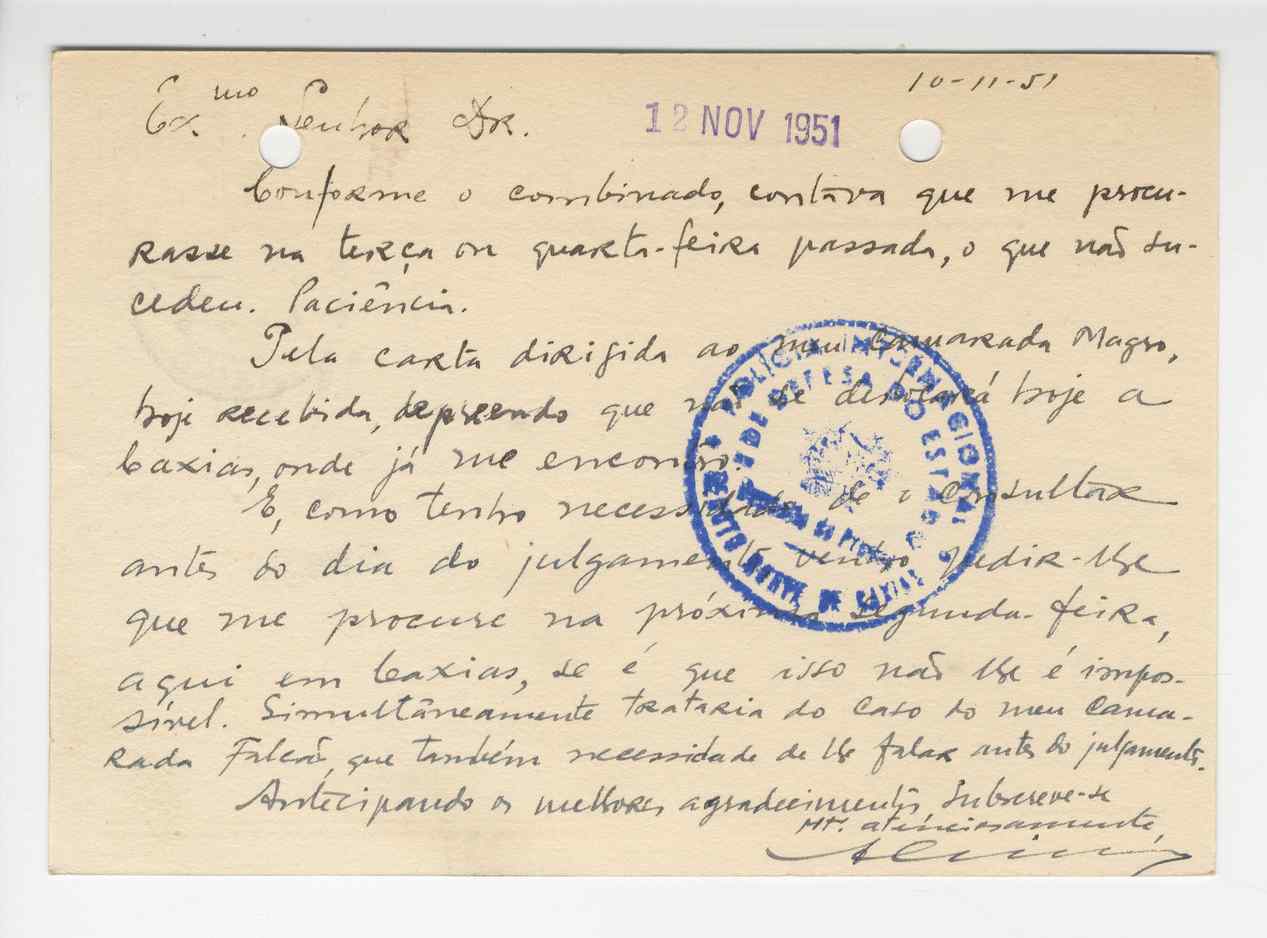 10-11-51
Ex.mo Senhor Dr.
12 NOV 1951
Conforme o combinado, contava que me procu-
rasse na terça ou quarta-feira passada, o que não su-
cedeu. Paciência.
Pela carta dirigida ao meu camarada Magro,
hoje recebida, depreendo que não se deslocará hoje a
Caxias, onde já me encontro.
E, como tenho necessidade de o consultar
antes do dia do julgamento venho pedir-lhe
que me procure na próxima segunda-feira,
aqui em Caxias, se é que isso não lhe é impos-
sível. Simultâneamente trataria do caso do meu cama-
rada Falcão, que também necessidade de lhe falar antes do julgamento.
Antecipando os melhores agradecimentos, subscreve-se
Mt. atenciosamente,
POLÍCIA INTERNACIONAL
E DE DEFESA DO ESTADO
FORTE DE CAXIAS